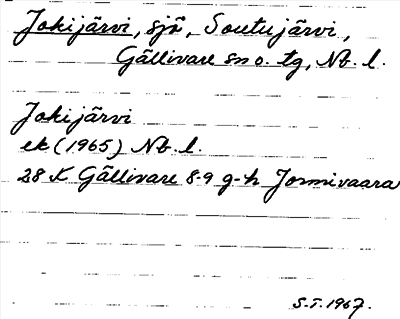 Jokijärvi, sjö, Soutujärvi,
Gällivare sn o. tg, Nb. l.
Jokijärvi
ek (1965) Nb. l.
28 K Gällivare 8-9 g-h Jormivaara
S.T. 1967.